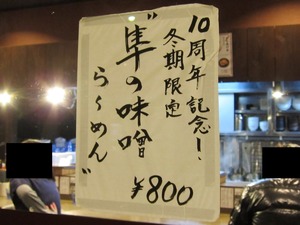 10周年記念！、
冬期限定
〝隼の味噌
らーめん〟
¥800